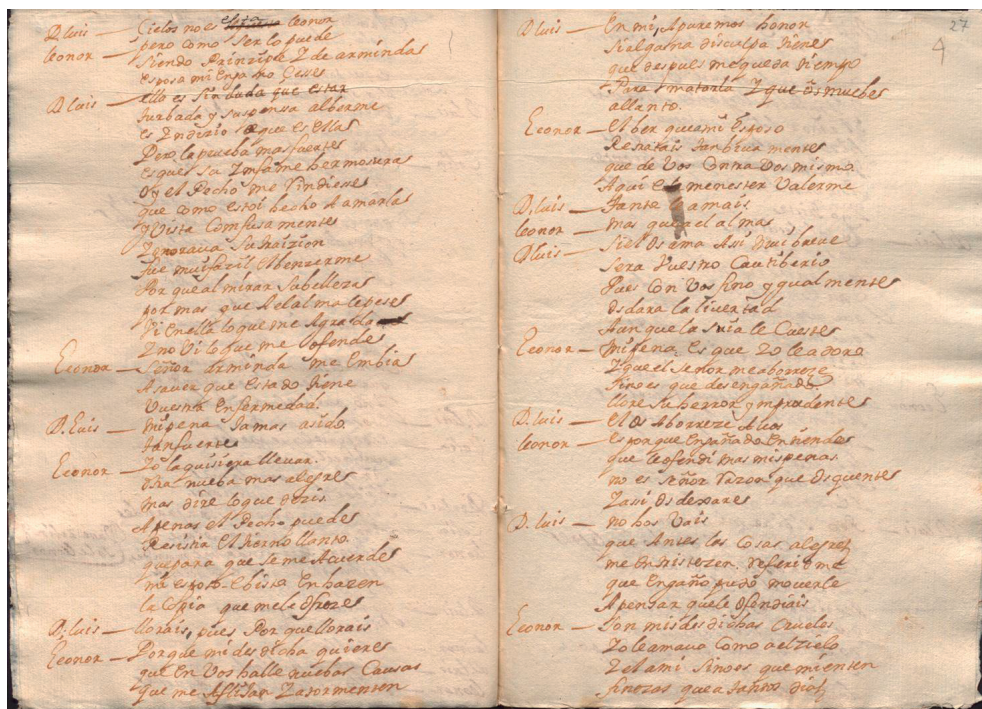 D. luis — Cielos no es esta leonor
pero como ser lo puede
leonor — siendo Prinzipe Y de arminda
esposa mi engaño Cesse
D. luis — ello es sin duda que estar
turbada y suspensa al berme
es Yndizio de que es ella
Pero la prueba mas fuerte
es que su Ynfame hermosura
oy el Pecho me rindiese
que como estoi hecho a amarla
y Vista Confusamente
Ygnoraua su traizion
fue mui fazil el benzerme
Por que al mirar su belleza
por mas que A el alma le pese
Vi en ella lo que me Agrada
Y no Vi lo que me ofende
Leonor — Señor arminda me embia
A sauer que estado tiene
Vuestra enfermedad.
D. Luis — Mi pena Jamas a sido
tan fuerte
Leonor — Yo la quisiera lleuar
otra nueba mas alegre
mas dire lo que dezis
Apenas el Pecho puede
Resistir el tierno llanto
que para que se me Acuerde
mi esposo — Ebista en hazen
la Copia que me le ofreze
D. luis — llorais, pues Por que llorais
Leonor — Porque mi desdicha quiere
que en Vos halle nuebas Causas
que me Aflijan Y atormenten
27
4
D. luis — En mi, Apuremos honor
si alguna disculpa tiene
que despues me queda tiempo
Para matarla Y que os muebe
al llanto.
Leonor — el ber que a mi esposo
Retratais tan biuamente
que de Vos Contra Vos mismo
Aqui es menester Valerme
D. luis — tanto le amais
leonor — mas que a el alma
D luis — si el os ama Assi mui breue
sera Vuestro Cautiberio
Pues Con Vos fino y qual mente
os dara la liuertad
aunque la suia le Cueste
Leonor — mi pena, es que Yo le adoro
Y que el Señor me aborreze
sino es que desengañado
llore su herror ymprudente
D. luis — el os Aborreze A Vos
leonor — es porque engañado entiende
que le ofendi mas mis penas
no es Señor razon que os quente
Y assi os dexare
D. luis — no hos Vais
que Antes las Cosas alegres
me entristezen, referidme
que engaño pudo mouerle
A pensar que le ofendiais
Leonor — son mis desdichas Crueles
Yo le amaua Como a el zielo
Y el a mi sino es que mienten
finezas que a tantos dias